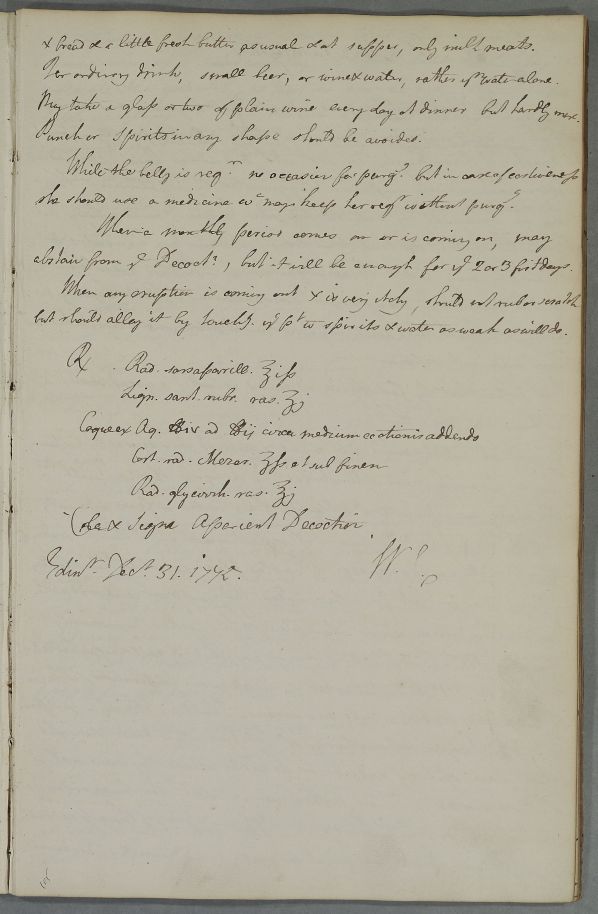 & bread & a little fresh butter as usual & at supper, only milk meats.
For ordinary drink, small beer, or wine & water, rather yn water alone.
May take a glass or two of plain wine every day at dinner but hardly more.
Punch or spirits in any shape should be avoided.
While the belly is regr no occasion for purgg. but in case of costiveness
she should use a medicine wc may keep her regr without purgg.
When a monthly period comes on or is coming on, may
abstain from ye Decoctn, but it will be enough for ye 2 or 3 first days.
When any eruption is coming out & is very itchy, should not rub or scratch
but should allay it by touchg. ye pt w spirits & water as weak as will do.
℞ Rad. sarsaparill. ℥iss
Lign. sant. rubr. ras. ℥j
Coque ex Aq. ℔iv ad ℔ij circa medium coctionis addendo
Cort. rad. Mezer. ʒss et sub finem
Rad. glycirrh. ras. ℥j
Cola & Signa Aperient Decoction
Edinr. Decr. 31. 1772. W.C.